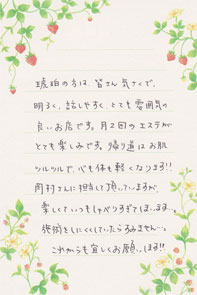 琥珀の方は、皆さん気さくで、
明るく、話しやすく、とても雰囲気の
良いお店です。月2回のエステが
とても楽しみです。帰り道はお肌
ツルツルで、心も体も軽くなります!!
岡村さんに担当して頂いていますが、
楽しくていつもしゃべりすぎてしまいます…。
施術をしにくくしていたらすみません…。
これからも宜しくお願いします!!